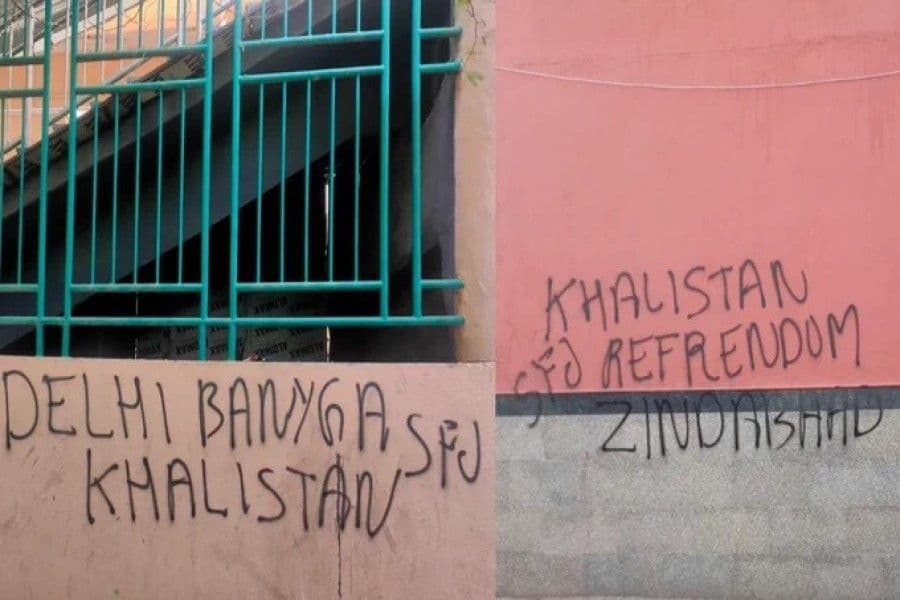 DELHI BANYGA
SFJ
KHALISTAN
KHALISTAN
SFJ REFRENDOM
ZINDABAAD